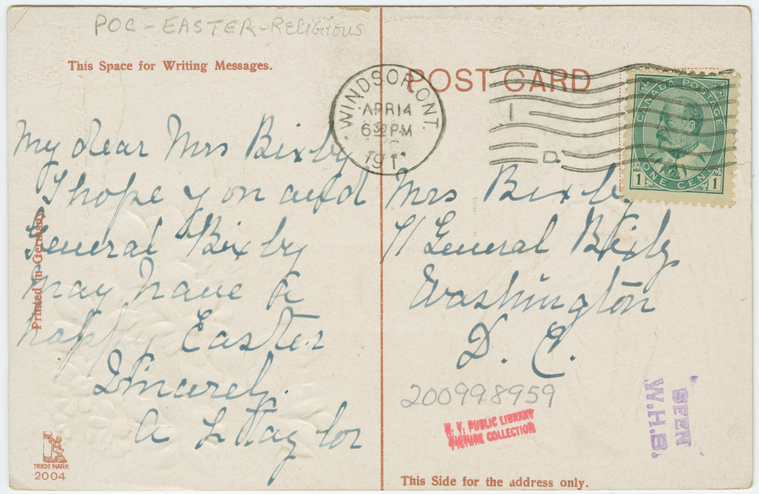 POC - EASTER - Religious
This Space for Writing Messages.
My dear Mrs Bixby
I hope you and
General Bixby
may have a
happy Easter
Sincerely
A L Taylor
Printed in Germany
TRADE MARK
2004
POST CARD
WINDSOR, ONT.
APR 14
6 30 PM
191
CANADA POSTAGE
1 ONE CENT 1
Mrs Bixby
General Bixby
Washington
D. C.
200998959
N. Y. PUBLIC LIBRARY
PICTURE COLLECTION
SEEN
W.H.B.
This Side for the address only.